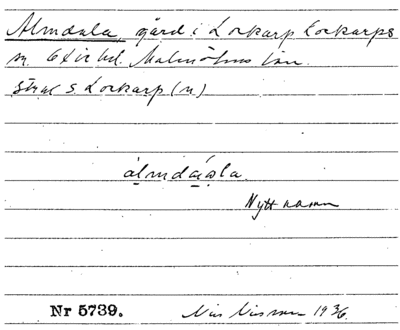 Almdala gård i Lockarp Lockarps
sn. Oxie hd. Malmöhus län.
strax s. Lockarp (n)
álmdaala
Nytt namn
Nr 5739. Nils Nilsson 1936.